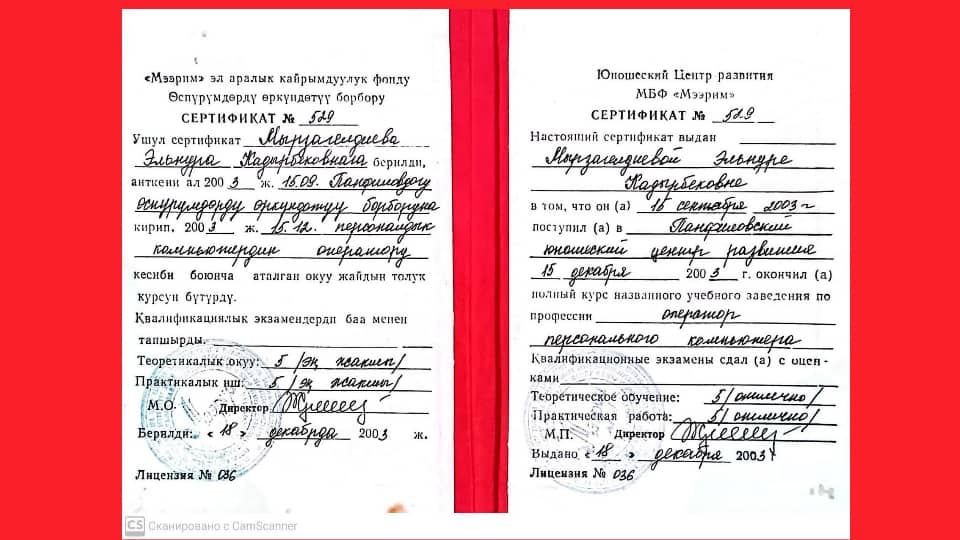 «Мээрим» эл аралык кайрымдуулук фонду
Өспүрүмдөрдү өркүндөтүү борбору
СЕРТИФИКАТ № 529
Ушул сертификат Мырзагелдиева
Эльнура Кадырбековнага берилди,
анткени ал 2003 ж. 15.09. Панфиловдогу
өспүрүмдөрдү өркүндөтүү борборуна
кирип, 2003 ж. 15.12. персоналдык
компьютердин оператору
кесиби боюнча аталган окуу жайдын толук
курсун бүтүрдү.
Квалификациялык экзамендерди баа менен
тапшырды.
Теоретикалык окуу: 5 /эң жакшы/
Практикалык иш: 5 /эң жакшы/
М.О. Директор
Берилди: «18» декабрда 2003 ж.
Лицензия № 036
Юношеский Центр развития
МБФ «Мээрим»
СЕРТИФИКАТ № 529
Настоящий сертификат выдан
Мырзагелдиевой Эльнуре
Кадырбековне
в том, что он (а) 15 сентября 2003 г
поступил (а) в Панфиловский
юношеский центр развития
15 декабря 2003 г. окончил (а)
полный курс названного учебного заведения по
профессии оператор
персонального компьютера
Квалификационные экзамены сдал (а) с оцен-
ками
Теоретическое обучение: 5/отлично/
Практическая работа: 5/отлично/
М.П. Директор
Выдано «18» декабря 2003 г
Лицензия № 036
CS Сканировано с CamScanner